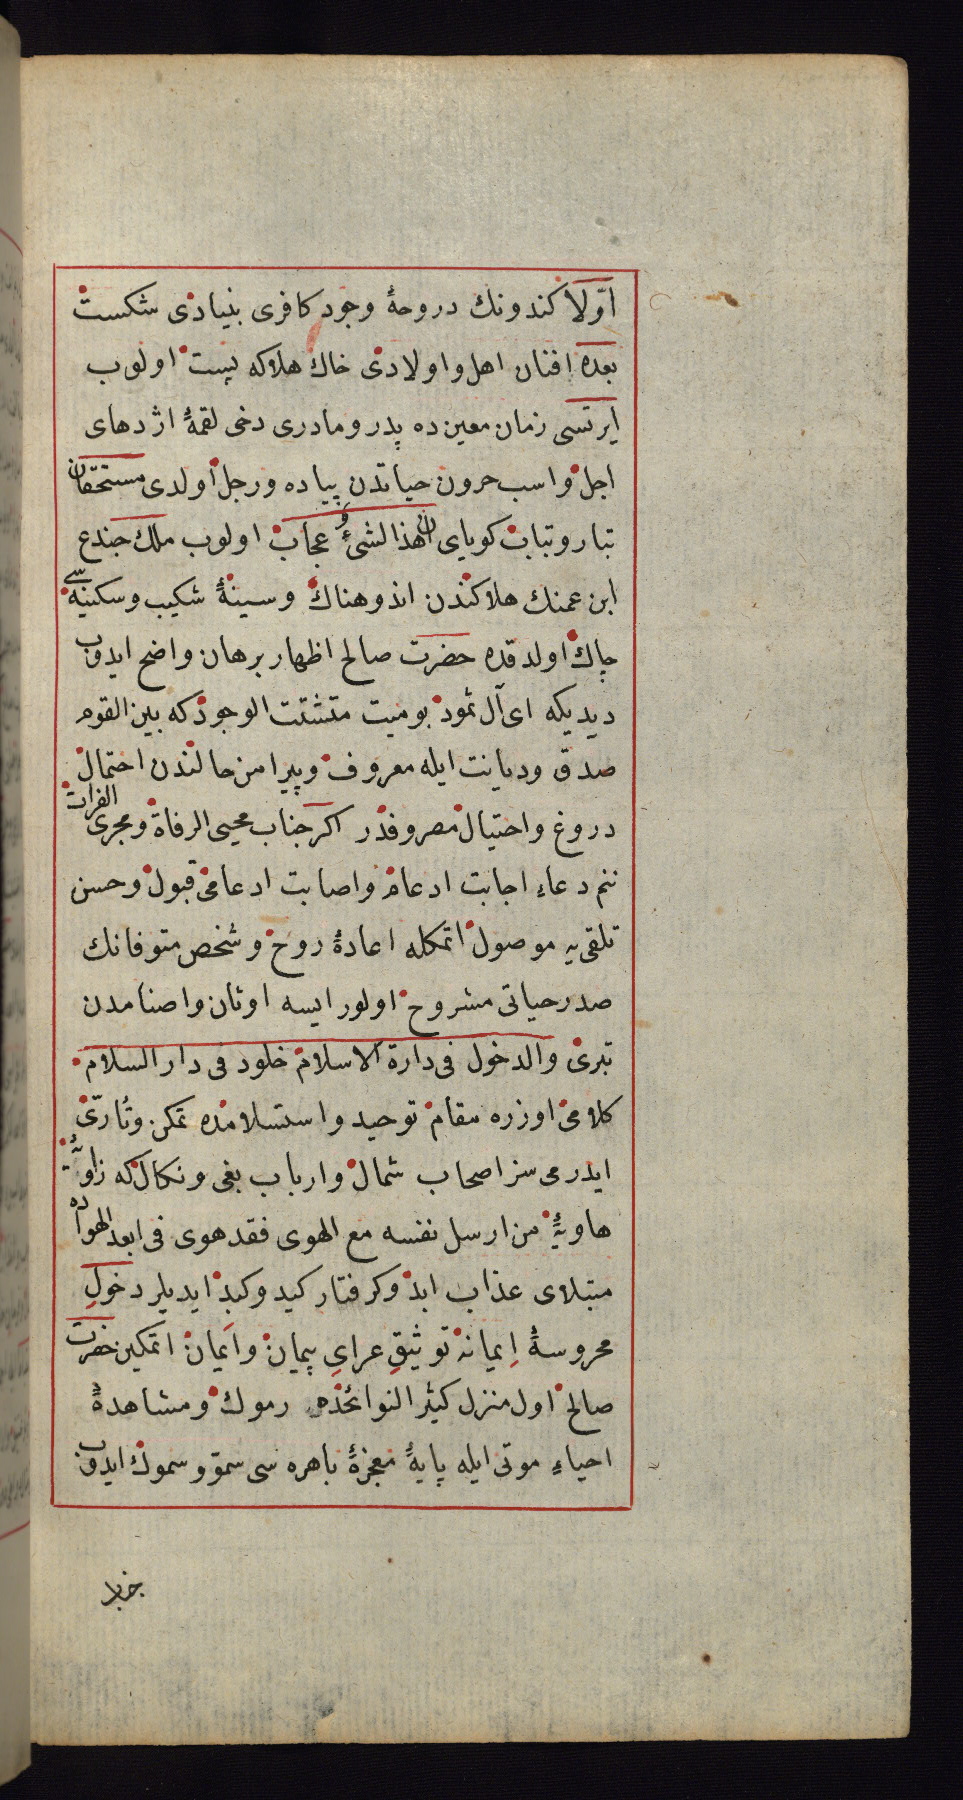 اوّلا كندونك دروحهٔ وجود كافرى بنيادى شكست
بعده افنان اهل و اولادى خاك هلاكه پست اولوب
ايرتسى زمان معين ده پدر و مادرى دخى لقمهٔ اژدهاى
اجل و اسب حرون حياتدن پياده و رجل اولدى مستحقان
تبار و تباب كوياى ان هذا لشىء عجاب اولوب ملك جندع
ابن عمنك هلاكندن اندوهناك و سينهٔ شكيب و سكينه سى
چاك اولدقده حضرت صالح اظهار برهان واضح ايدوب
ديديكه اى آل ثمود بو ميت متشتت الوجود كه بين القوم
صدق و ديانت ايله معروف و پيرامن حالندن احتمال
دروغ و احتيال مصروفدر اكر جناب محيى الرفاة و مجرى الفرات
ننم دعاء اجابت ادعام و اصابت ادعامى قبول و حسن
تلقى يه موصول اتمكله اعادهٔ روح و شخص متوفانك
صدر حياتى مشروح اولور ايسه اوثان و اصنامدن
تبرى و الدخول فى دارة الاسلام خلود فى دار السلام
كلامى اوزره مقام توحيد و استسلامده تمكن و تأرّى
ايدرمى سز اصحاب شمال و ارباب بغى و نكال كه زاويهٔ
هاويهٔ من ارسل نفسه مع الهوى فقد هوى فى ابعد الهواده
مبتلاى عذاب ابد و كرفتار كيد و كبد ايديلر دخولِ
محروسهٔ اِيمانه توثيقِ عراىِ پيمان و اَيمان اتمكين حضرت
صالح اول منزل كثير النوائحده رموك و مشاهدهٔ
احياءِ موتى ايله پايهٔ معجزهٔ باهره سى سمو و سموك ايدوب